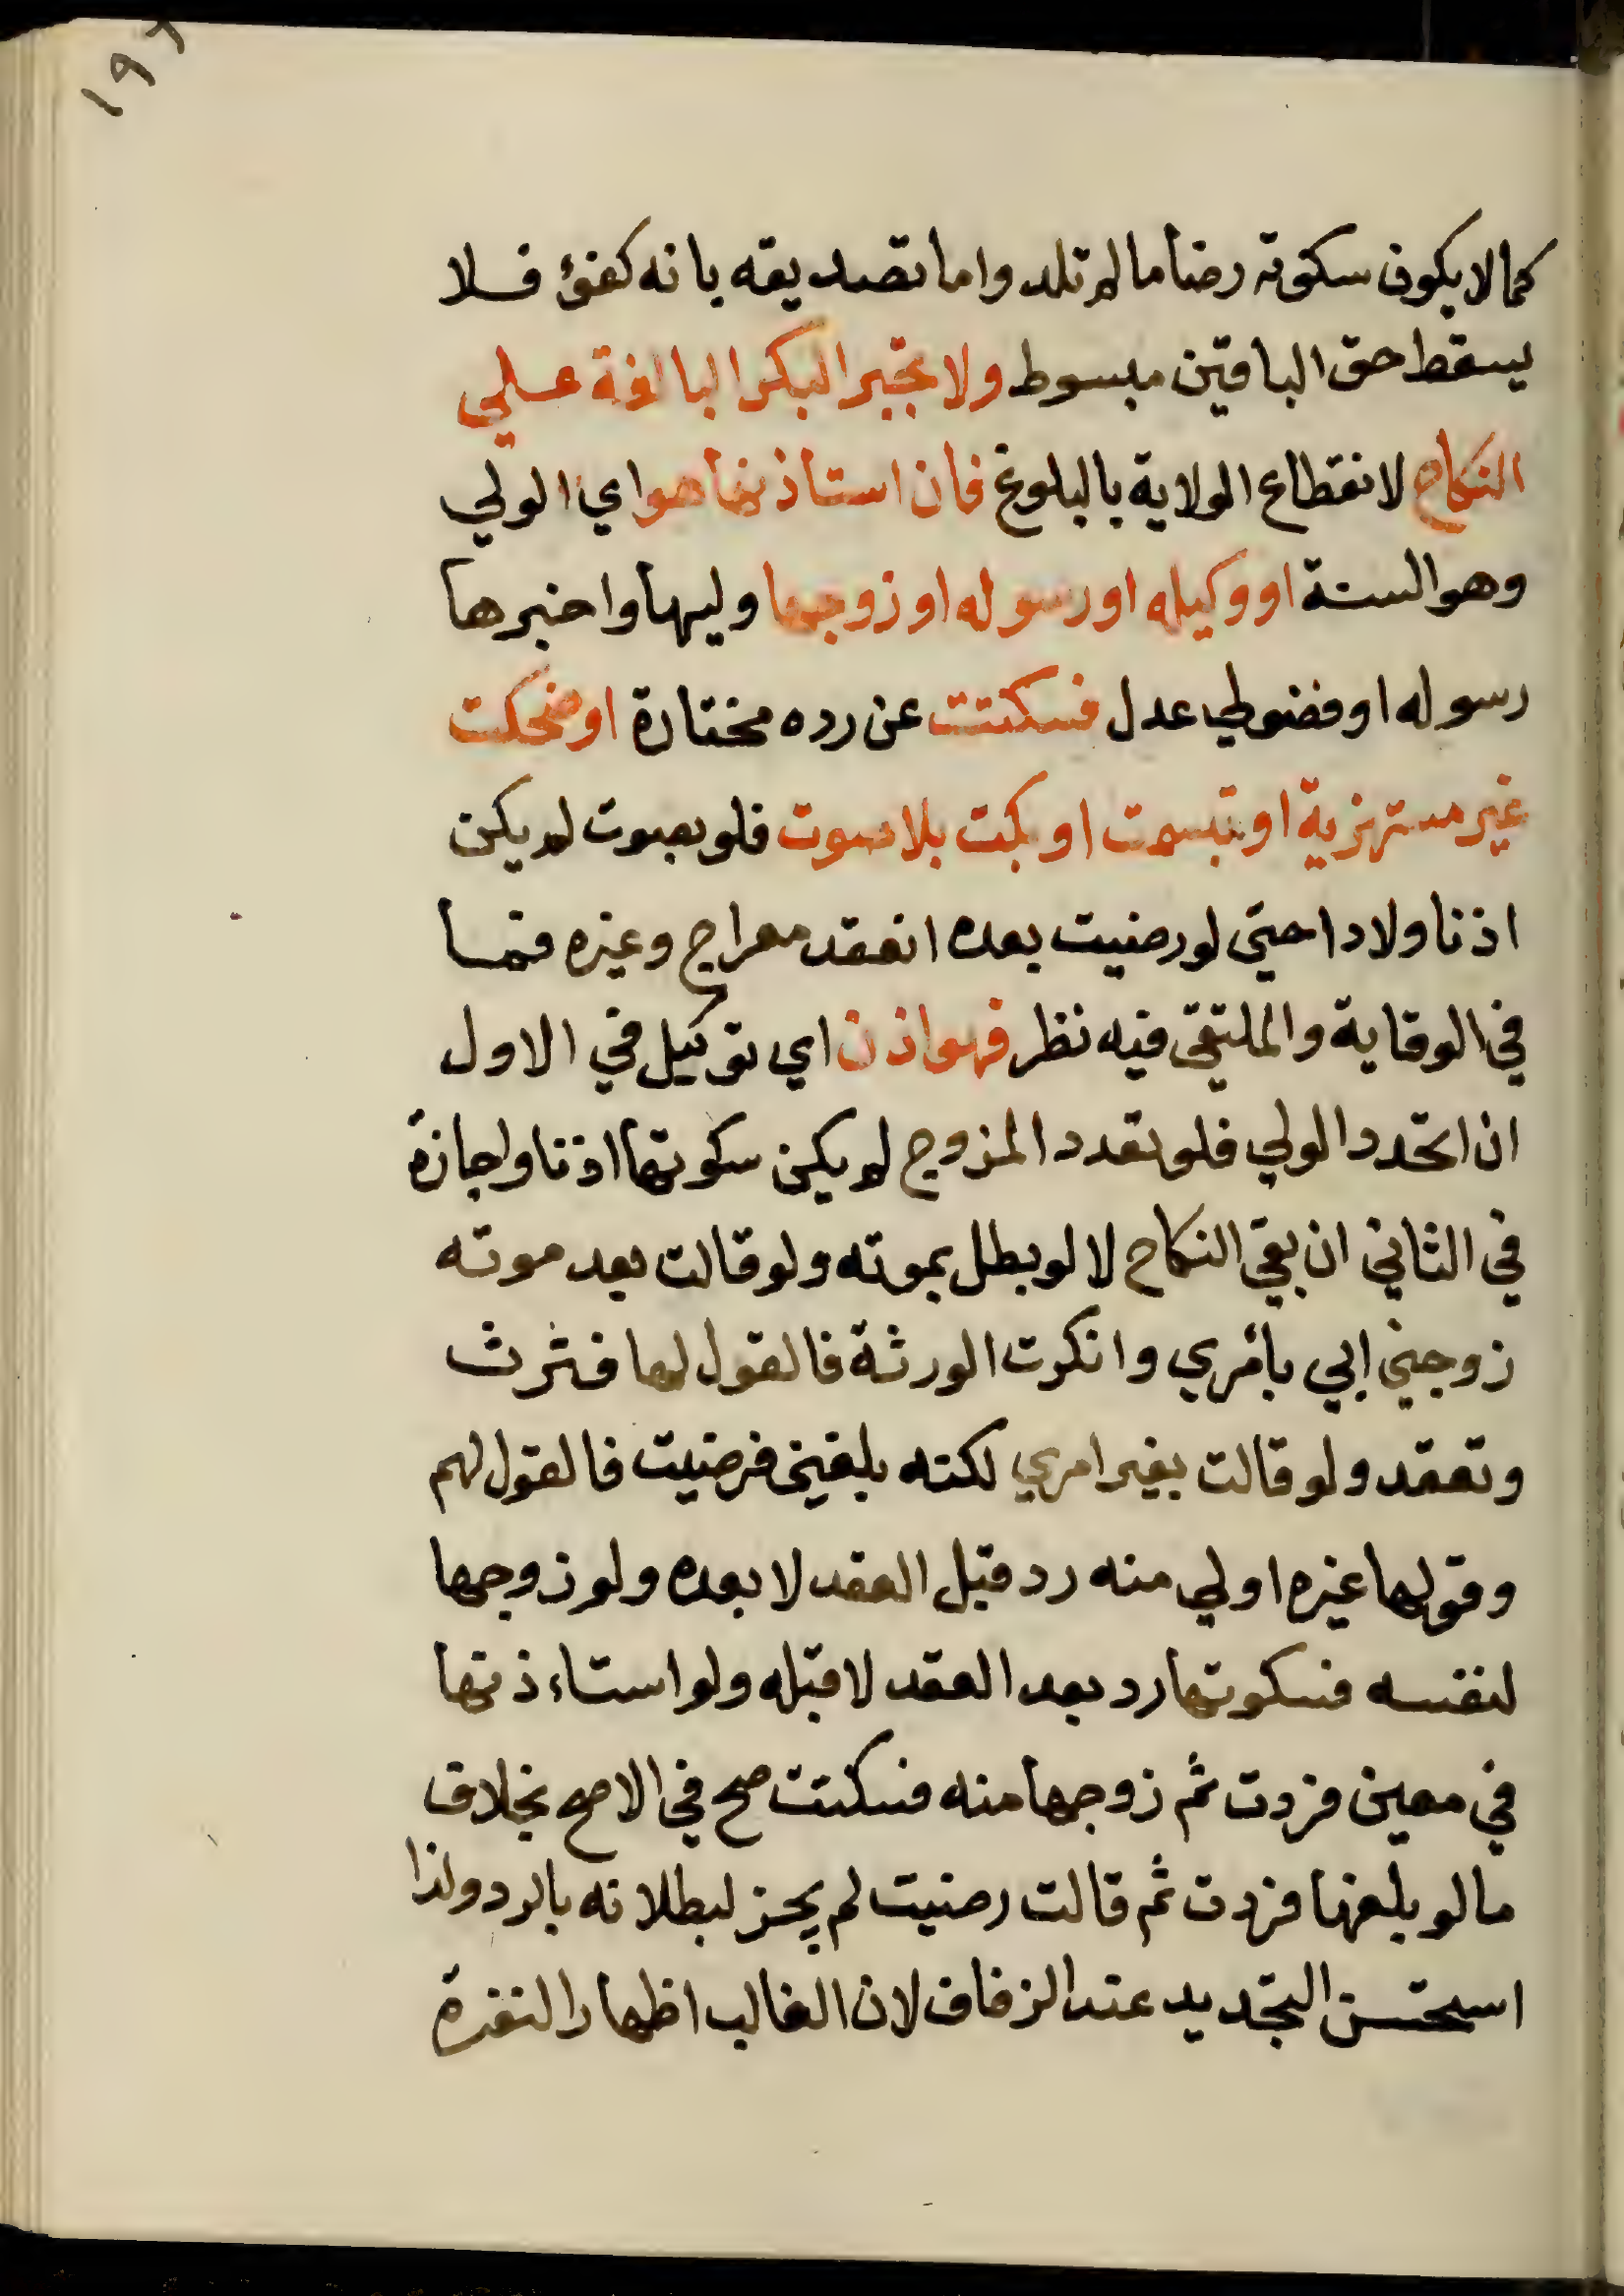 ١٩٢
كما لا يكون سكوته رضا ما لم تلد واما تصديقه بانه كفؤ فلا
يسقط حق الباقين مبسوط ولا تجبر البكر البالغة علي
النكاح لانقطاع الولاية بالبلوغ فان استاذنها هو اي الولي
وهو السنة او وكيله او رسوله او زوجها وليها واخبرها
رسوله او فضولي عدل فسكتت عن رده مختارة او ضحكت
غير مستهزية او تبسمت او بكت بلا صوت فلو بصوت لم يكن
اذنا ولا ردا حتى لو رضيت بعده انعقد معراج وغيره فما
في الوقاية والملتقى فيه نظر فهو اذن اي توكيل في الاول
ان اتحد الولي فلو تعدد المزوج لم يكن سكوتها اذنا واجازة
في الثاني ان بقي النكاح لا لو بطل بموته ولو قالت بعد موته
زوجني ابي بأمري وانكرت الورثة فالقول لها فترث
وتعتد ولو قالت بغير امري لكنه بلغني فرضيت فالقول لهم
وقولها غيره اولي منه رد قبل العقد لا بعده ولو زوجها
لنفسه فسكوتها رد بعد العقد لا قبله ولو استاءذنها
في معين فردت ثم زوجها منه فسكتت صح في الاصح بخلاف
ما لو بلغها فردت ثم قالت رضيت لم يجز لبطلانه بالرد ولذا
استحسن التجديد عند الزفاف لان الغالب اظهار النفرة